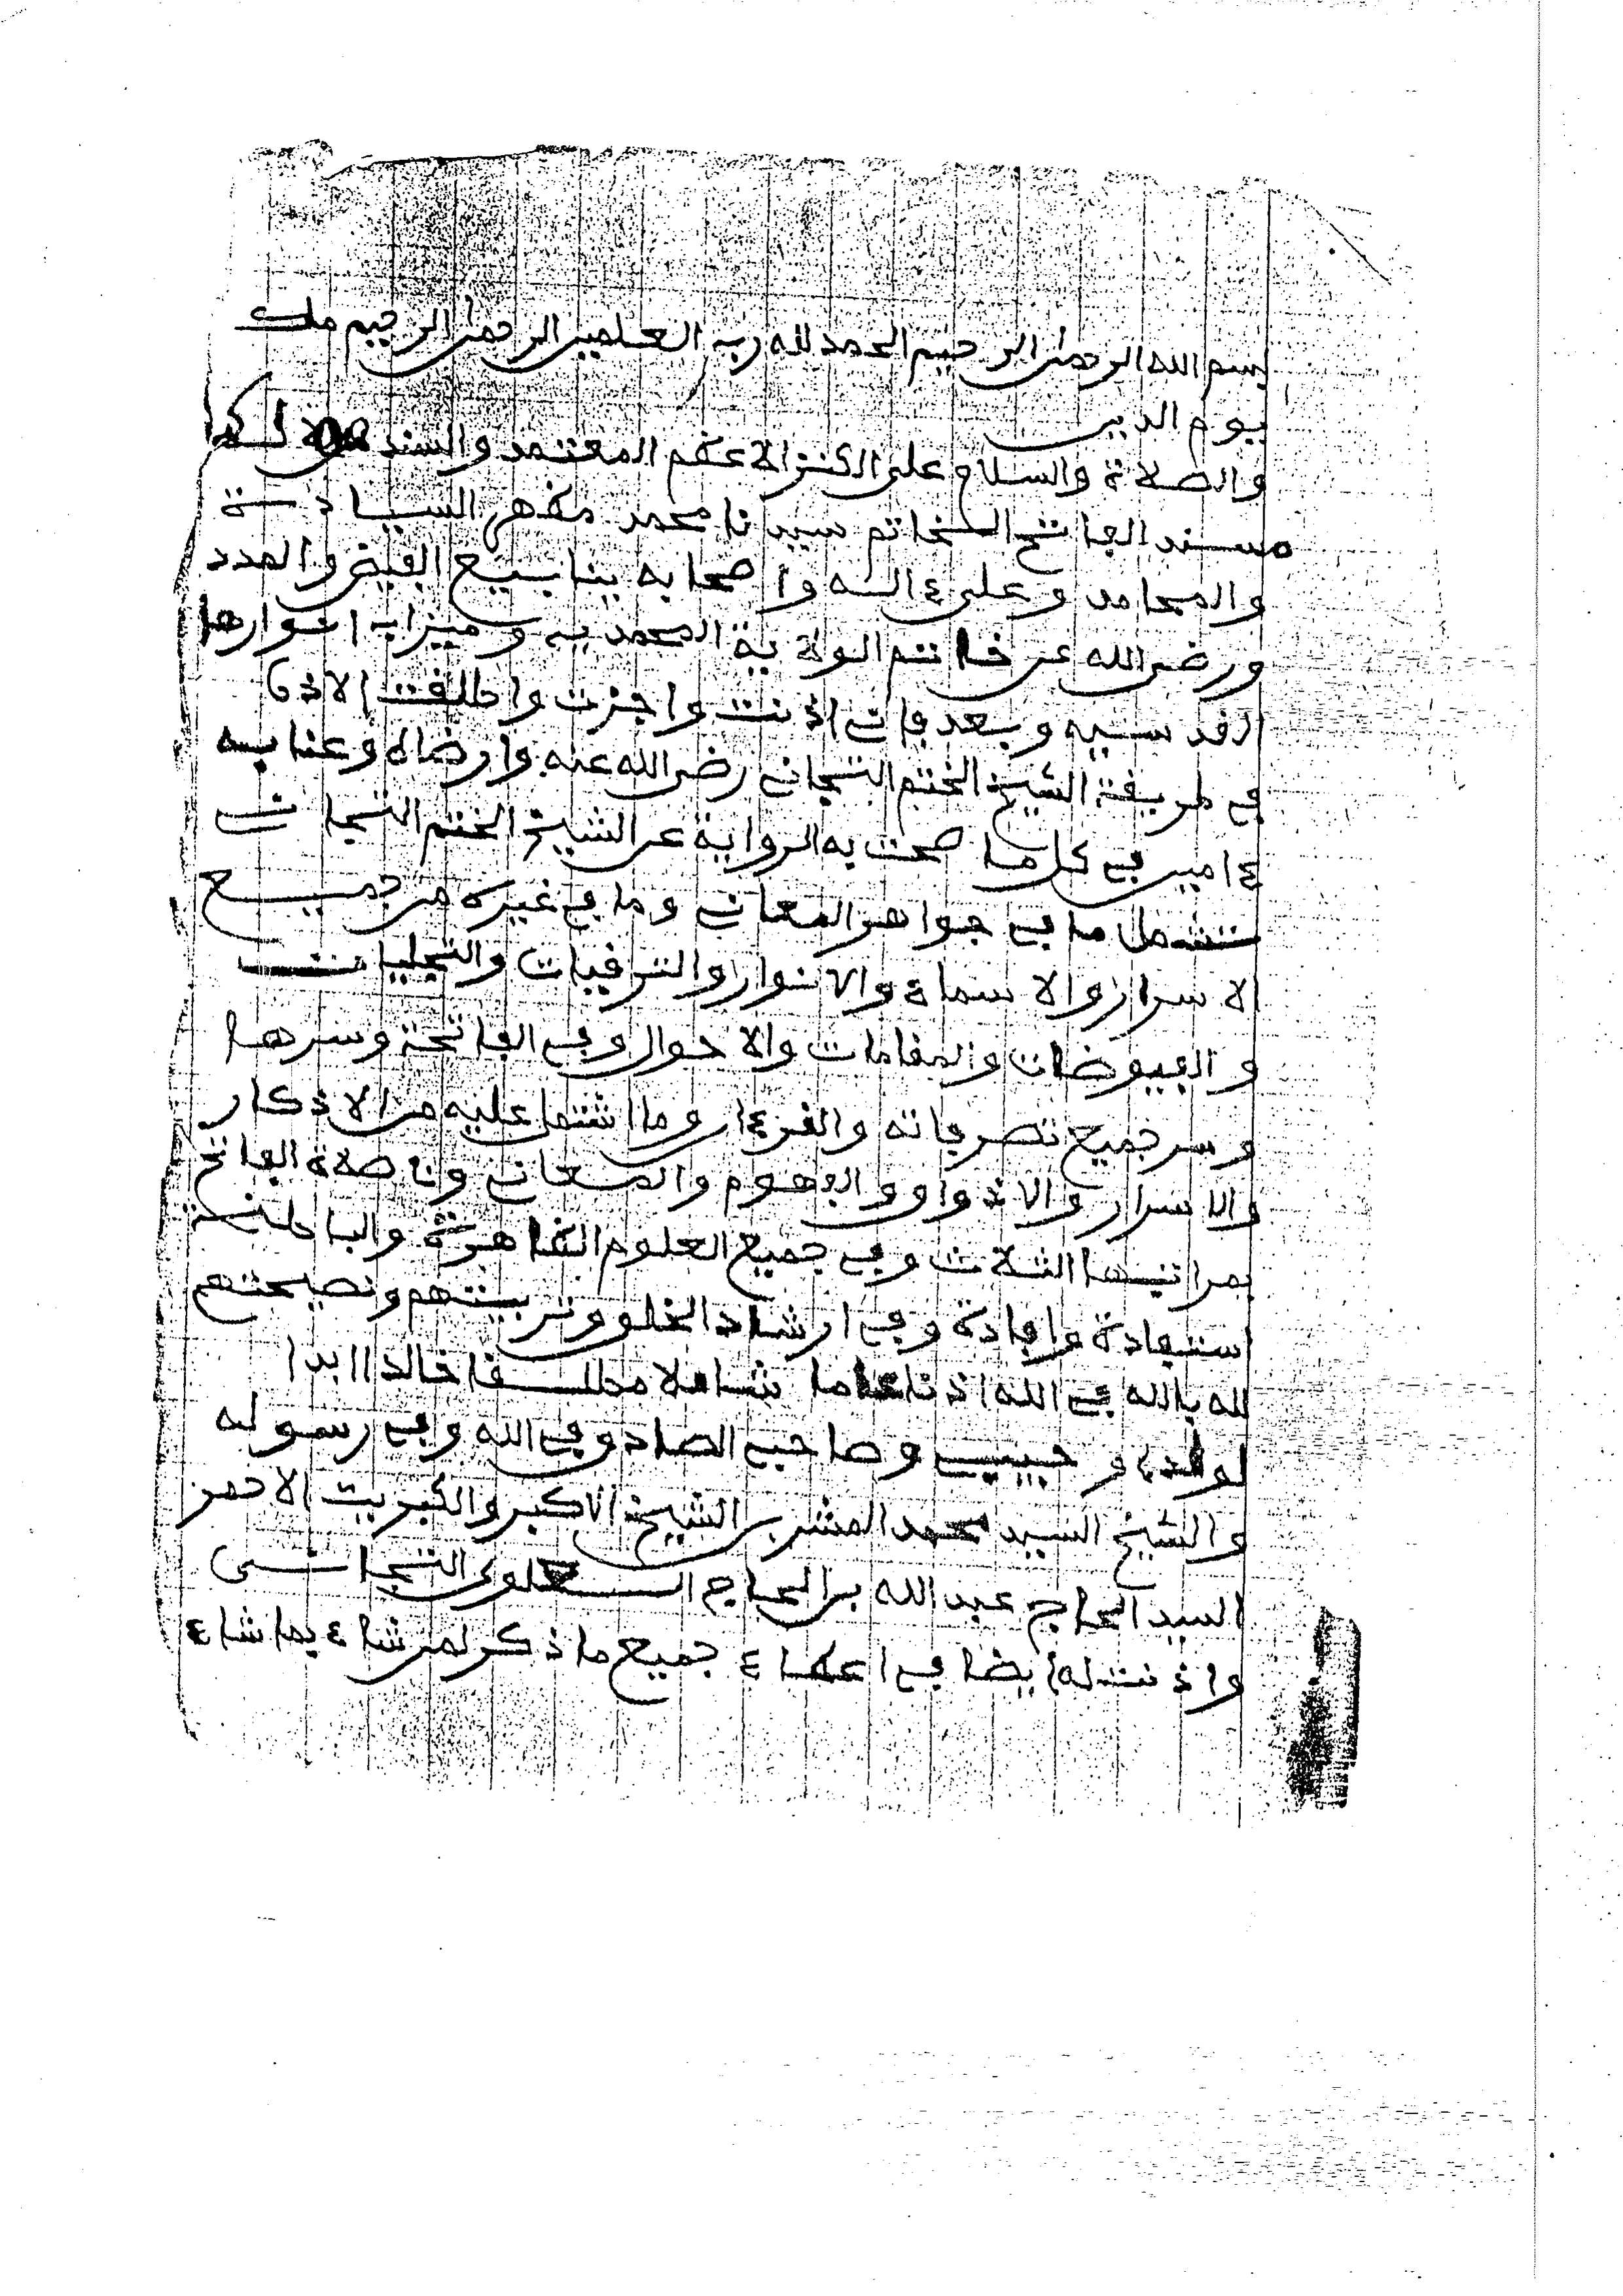 بسم الله الرحمن الرحيم الحمد لله رب العلمين الرحمن الرحيم ملك
يوم الدين
والصلاة والسلام على الكنز الاعظم المعتمد والسند
مسند الفاتح الخاتم سيدنا محمد مظهر السيادة
والمحامد وعلى ءاله واصحابه ينابيع الفيض والمدد
ورضي الله عن خاتم الولاية المحمديه وميزاب انوارها
القدسيه وبعد فاني اذنت واجزت واطلقت الاذن
في طريقة الشيخ الختم التجاني رضي الله عنه وارضاه وعنا به
ءامين في كل ما صحت به الرواية عن الشيخ الختم التجاني
تشمل ما في جواهر المعاني وما في غيره من جميع
الاسرار والاسماء والانوار والترقيات والتجليات
والفيوضات والمقامات والاحوال وفي الفاتحة وسرها
وسر جميع تصريفاته والقرءان وما اشتمل عليه من الاذكار
والاسرار والاذواق والفهوم والمعاني وفي صلاة الفاتح
بمراتبها الثلاث وفي جميع العلوم الظاهرة والباطنة
استفادة وافادة وفي ارشاد الخلق وتربيتهم ونصيحتهم
لله بالله في الله اذنا عاما شاملا مطلقا خالدا ابدا
لولدي وحبيبي وصاحبي الصادق في الله وفي رسوله
والشيخ السيد محمد المشري الشيخ الاكبر والكبريت الاحمر
السيد الحاج عبد الله بن الحاج العلوي التجاني
واذنت له ايضا في اعطاء جميع ما ذكر لمن شاء بما شاء